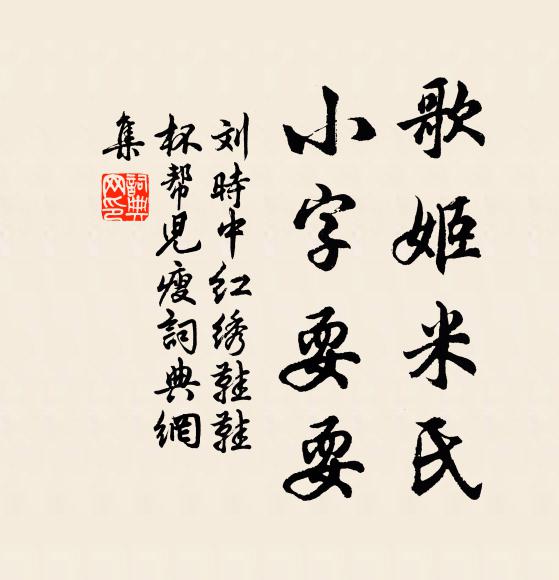 歌姬米氏
小字耍耍
刘時中红绣鞋鞋
杯帮児瘦詞典網
集
詞典
网印